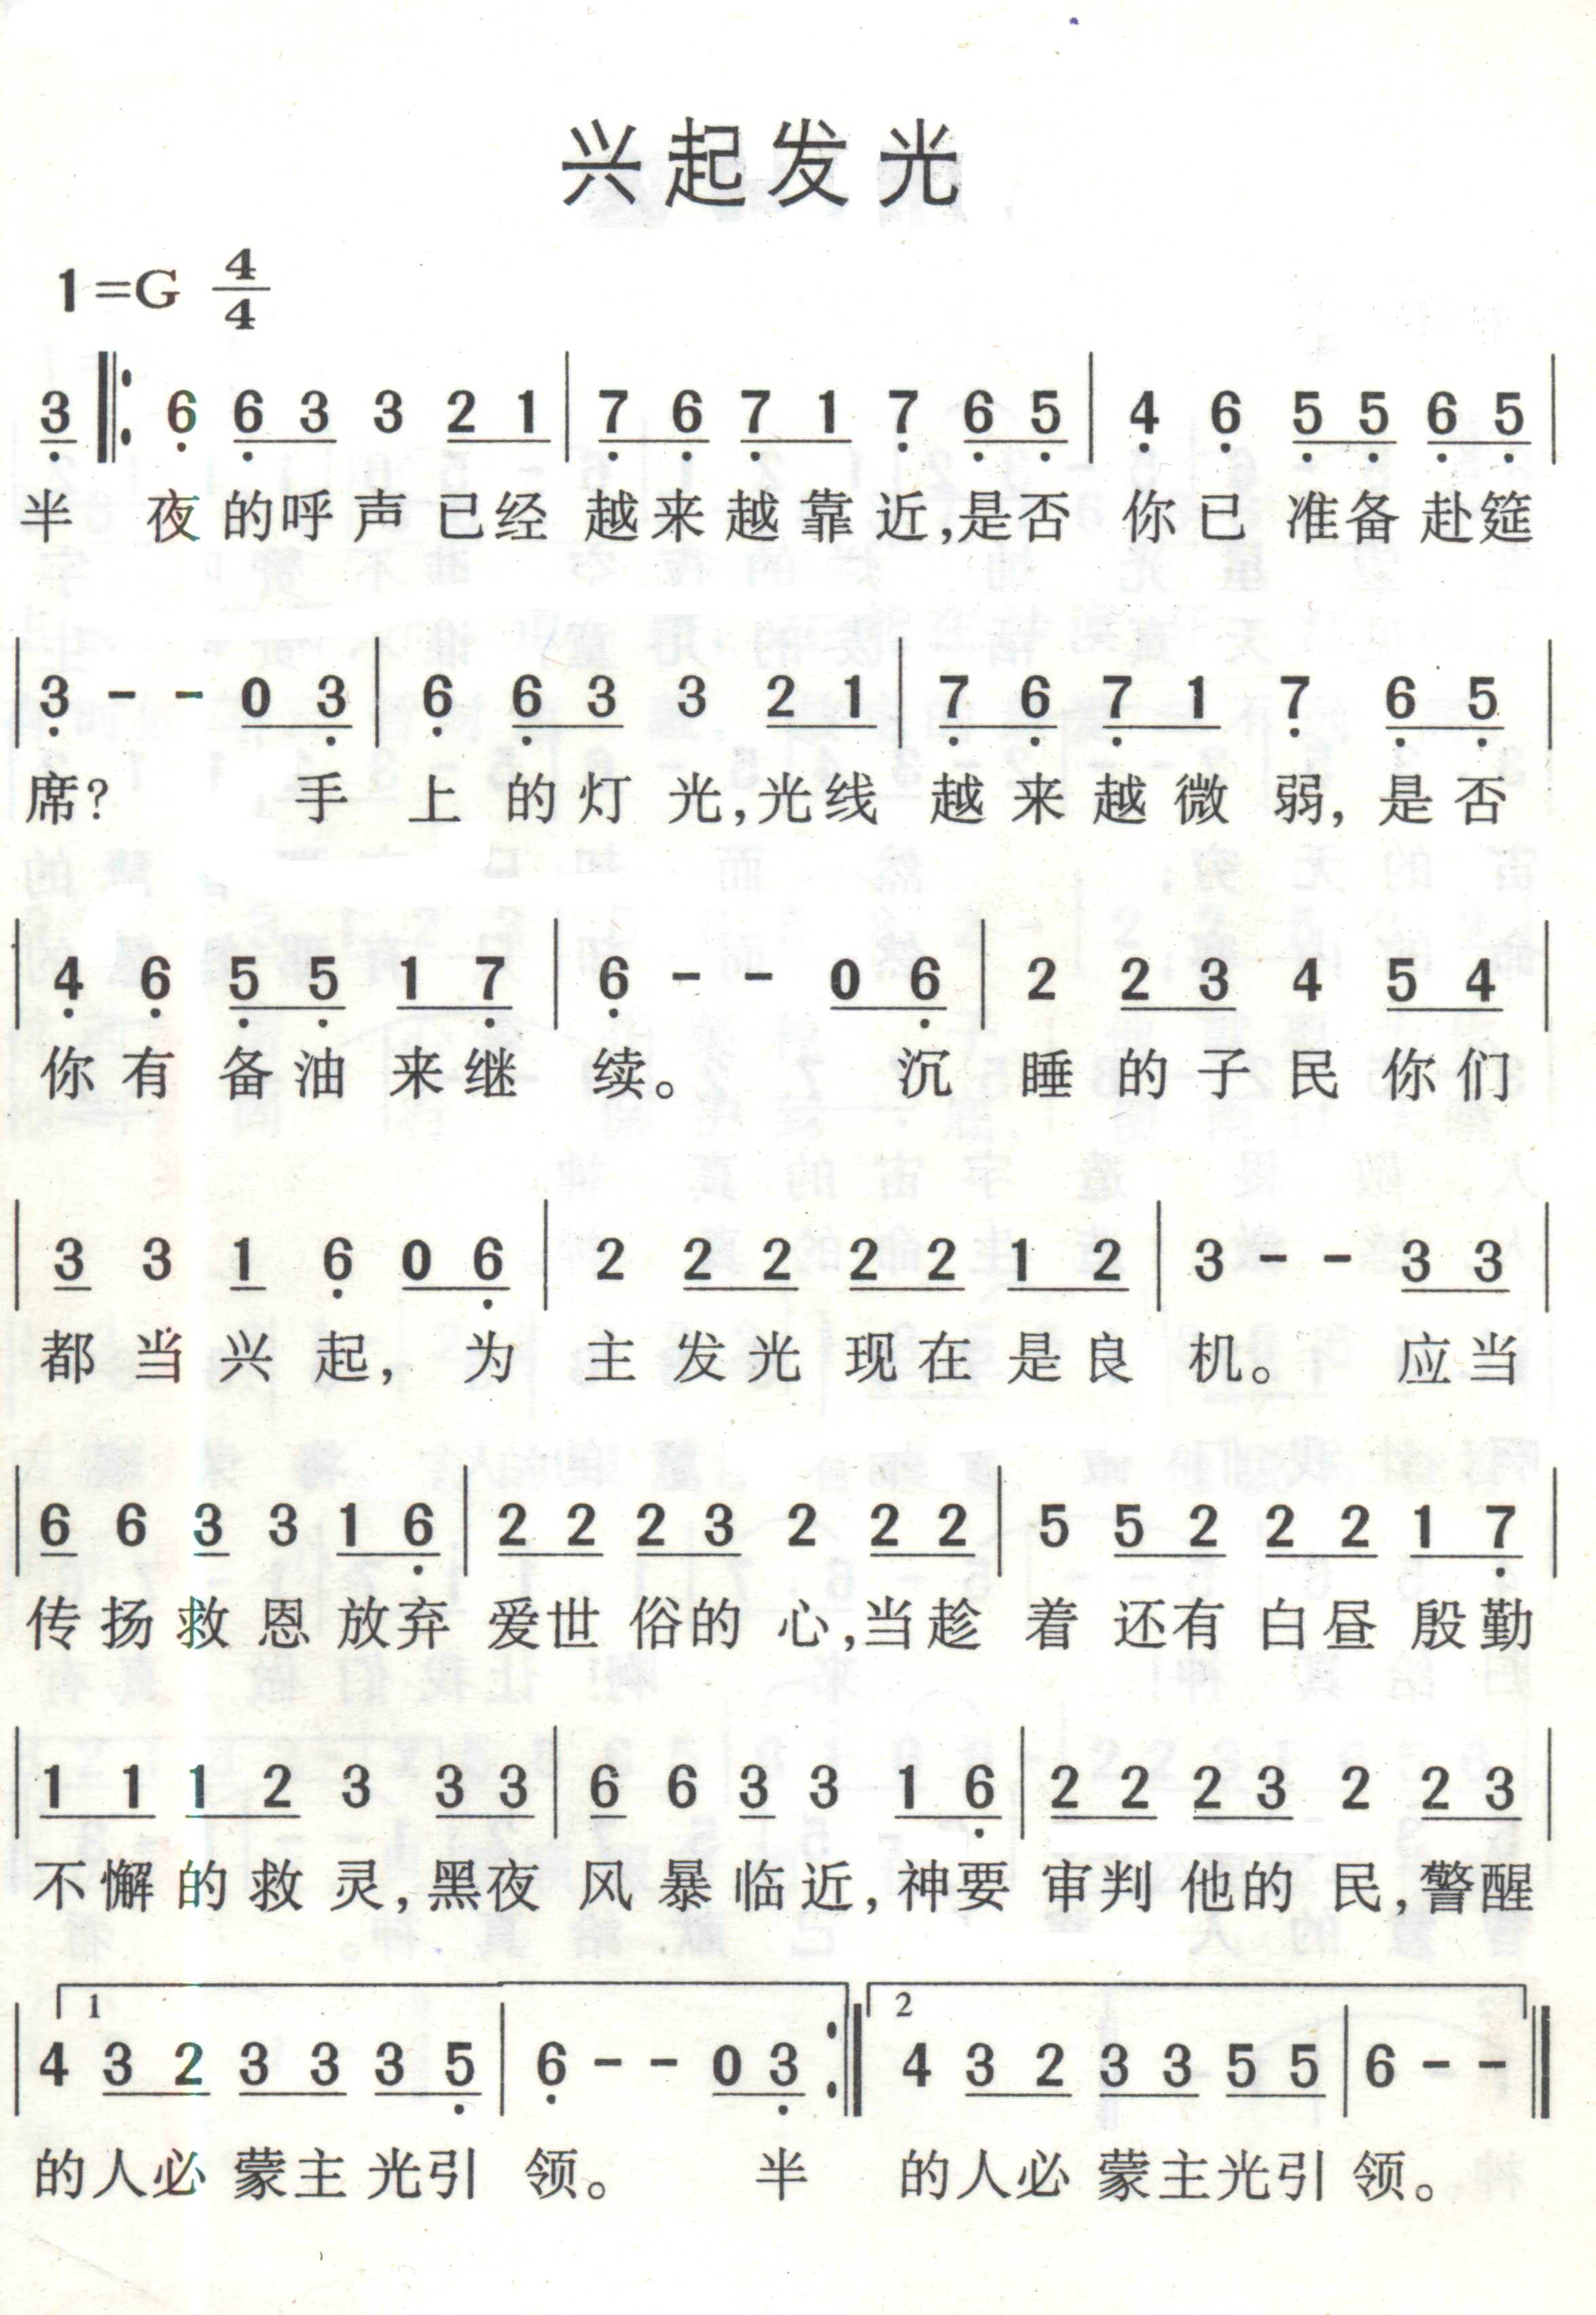 兴起发光
1=G 4/4
3 6 6 3 3 2 1 | 7 6 7 1 7 6 5 | 4 6 5 5 6 5 |
半 夜 的呼 声 已经 越来越靠 近,是否 你已 准备赴筵
| 3 - - 0 3 | 6 6 3 3 2 1 | 7 6 7 1 7 6 5 |
席? 手 上 的灯 光,光线 越来越微 弱,是否
| 4 6 5 5 1 7 | 6 - - 0 6 | 2 2 3 4 5 4 |
你有 备油 来继 续。 沉 睡 的子 民 你们
| 3 3 1 6 0 6 | 2 2 2 2 2 1 2 | 3 - - 3 3 |
都 当 兴 起, 为 主 发光 现在 是良 机。 应当
| 6 6 3 3 1 6 | 2 2 2 3 2 2 2 | 5 5 2 2 2 1 7 |
传扬救恩放弃 爱世俗的 心,当趁 着 还有 白昼 殷勤
| 1 1 1 2 3 3 3 | 6 6 3 3 1 6 | 2 2 2 3 2 2 3 |
不懈的救 灵,黑夜 风暴临近,神要 审判他的 民,警醒
1 2
| 4 3 2 3 3 3 5 | 6 - - 0 3 :| 4 3 2 3 3 5 5 | 6 - - ||
的人必 蒙主光引 领。 半 的人必 蒙主光引 领。